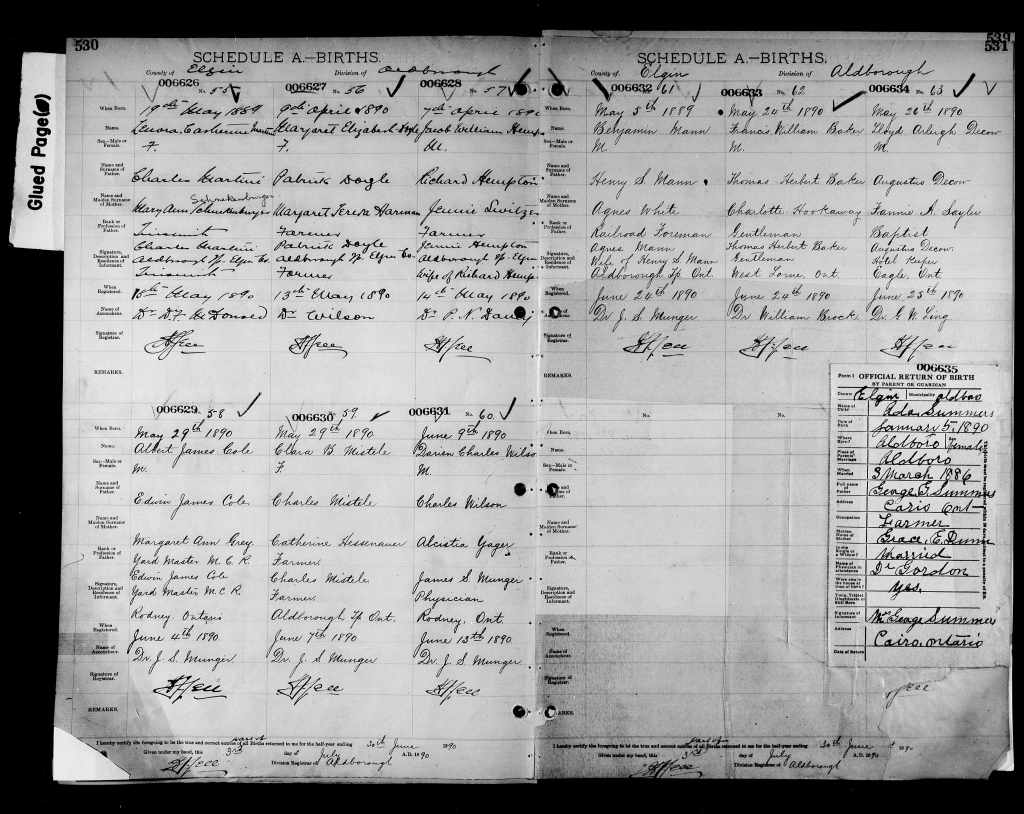 530
Glued Page(s)
SCHEDULE A.—BIRTHS.
County of Elgin Division of Aldborough
006626 No. 55 006627 56 006628 57
When Born. 19th May 1889 9th April 1890 7th April 1890
Name. Lenora Catherine Margaret Elizabeth Doyle Jacob William Hemp
Sex—Male or Female. F. F. M.
Name and Surname of Father. Charles Martini Patrick Doyle Richard Hempton
Schnekenburger
Name and Maiden Surname of Mother. Mary Ann Margaret Terese Harman Jennie
Rank or Profession of Father. Tinsmith Farmer Farmer
Signature, Description and Residence of Informant. Charles Martini Patrick Doyle Jennie Hempton
Aldborough Tp. Elgin Co. Aldborough Tp. Elgin Co. Aldborough Tp. Elgin
Tinsmith Farmer Wife of Richard Hemp
When Registered. 13th May 1890 14th May 1890
Name of Accoucheur. Dr D.F. McDonald Dr Wilson Dr P. N.
Signature of Registrar.
REMARKS.
006629 58 006630 59 006631 No. 60
When Born. May 29th 1890 May 29th 1890 June 9th 1890
Name. Albert James Cole Clara B. Mistele Charles Wilso
Sex—Male or Female. M. F M.
Name and Surname of Father. Edwin James Cole Charles Mistele Charles Wilson
Name and Maiden Surname of Mother. Margaret Ann Grey Catherine Hessenauer Yager
Rank or Profession of Father. Yard Master M. C. R. Farmer
Signature, Description and Residence of Informant. Edwin James Cole Charles Mistele James S. Munger
Yard Master M.C.R. Farmer Physician
Rodney, Ontario Aldborough Tp. Ont. Rodney, Ont.
When Registered. June 4th 1890 June 7th 1890 June 13th 1890
Name of Accoucheur. Dr. J. S. Munger Dr. J. S. Munger Dr. J. S. Munger
Signature of Registrar.
REMARKS.
part of
I hereby certify the foregoing to be the true and correct entries of all Births returned to me for the half-year ending 30th June 1890
Given under my hand, this 3rd day of July A.D. 1890
Division Registrar of Aldborough
531
SCHEDULE A.—BIRTHS.
County of Elgin Division of Aldborough
006632 61 006633 No. 62 006634 No. 63
When Born. May 5th 1889 May 24th 1890 May 26th 1890
Name. Benjamin Mann Francis William Baker Lloyd Arleigh Decow
Sex—Male or Female. M. M. M.
Name and Surname of Father. Henry S. Mann Thomas Herbert Baker Augustus Decow
Name and Maiden Surname of Mother. Agnes White Charlotte Hookaway Fannie A. Sayler
Rank or Profession of Father. Railroad Foreman Gentleman Baptist
Signature, Description and Residence of Informant. Agnes Mann Thomas Herbert Baker Augustus Decow
Wife of Henry S. Mann Gentleman Hotel Keeper
Aldborough Tp. Ont West Lorne, Ont. Eagle, Ont
When Registered. June 24th 1890 June 24th 1890 June 25th 1890
Name of Accoucheur. Dr J. S. Munger Dr William Brock Dr. G. W. Ling
Signature of Registrar.
REMARKS.
No. No.
When Born.
Name.
Sex—Male or Female.
Name and Maiden Surname of Mother.
Rank or Profession of Father.
Signature, Description and Residence of Informant.
When Registered.
Name of Accoucheur.
Signature of Registrar.
006635
Form 1 OFFICIAL RETURN OF BIRTH
BY PARENT OR GUARDIAN
County Elgin Municipality Aldboro
Name of Child Ada Summers
Date of Birth January 5, 1890
Where Born? Aldboro Sex Female
Place of Parents' Marriage Aldboro
When Married 3 March 1886
Full name of Father George T. Summers
Address Cairo Ont
Occupation Farmer
Maiden Name of Mother Grace E. Dunn
Married
Name of Physician in attendance Dr Gordon
Yes.
Signature of Informant Mr George Summers
Address Cairo, Ontario
Date of Return
part of
I hereby certify the foregoing to be the true and correct entries of all Births returned to me for the half-year ending 30th June 1890
Given under my hand, this 3rd day of July A.D. 1890
Division Registrar of Aldborough